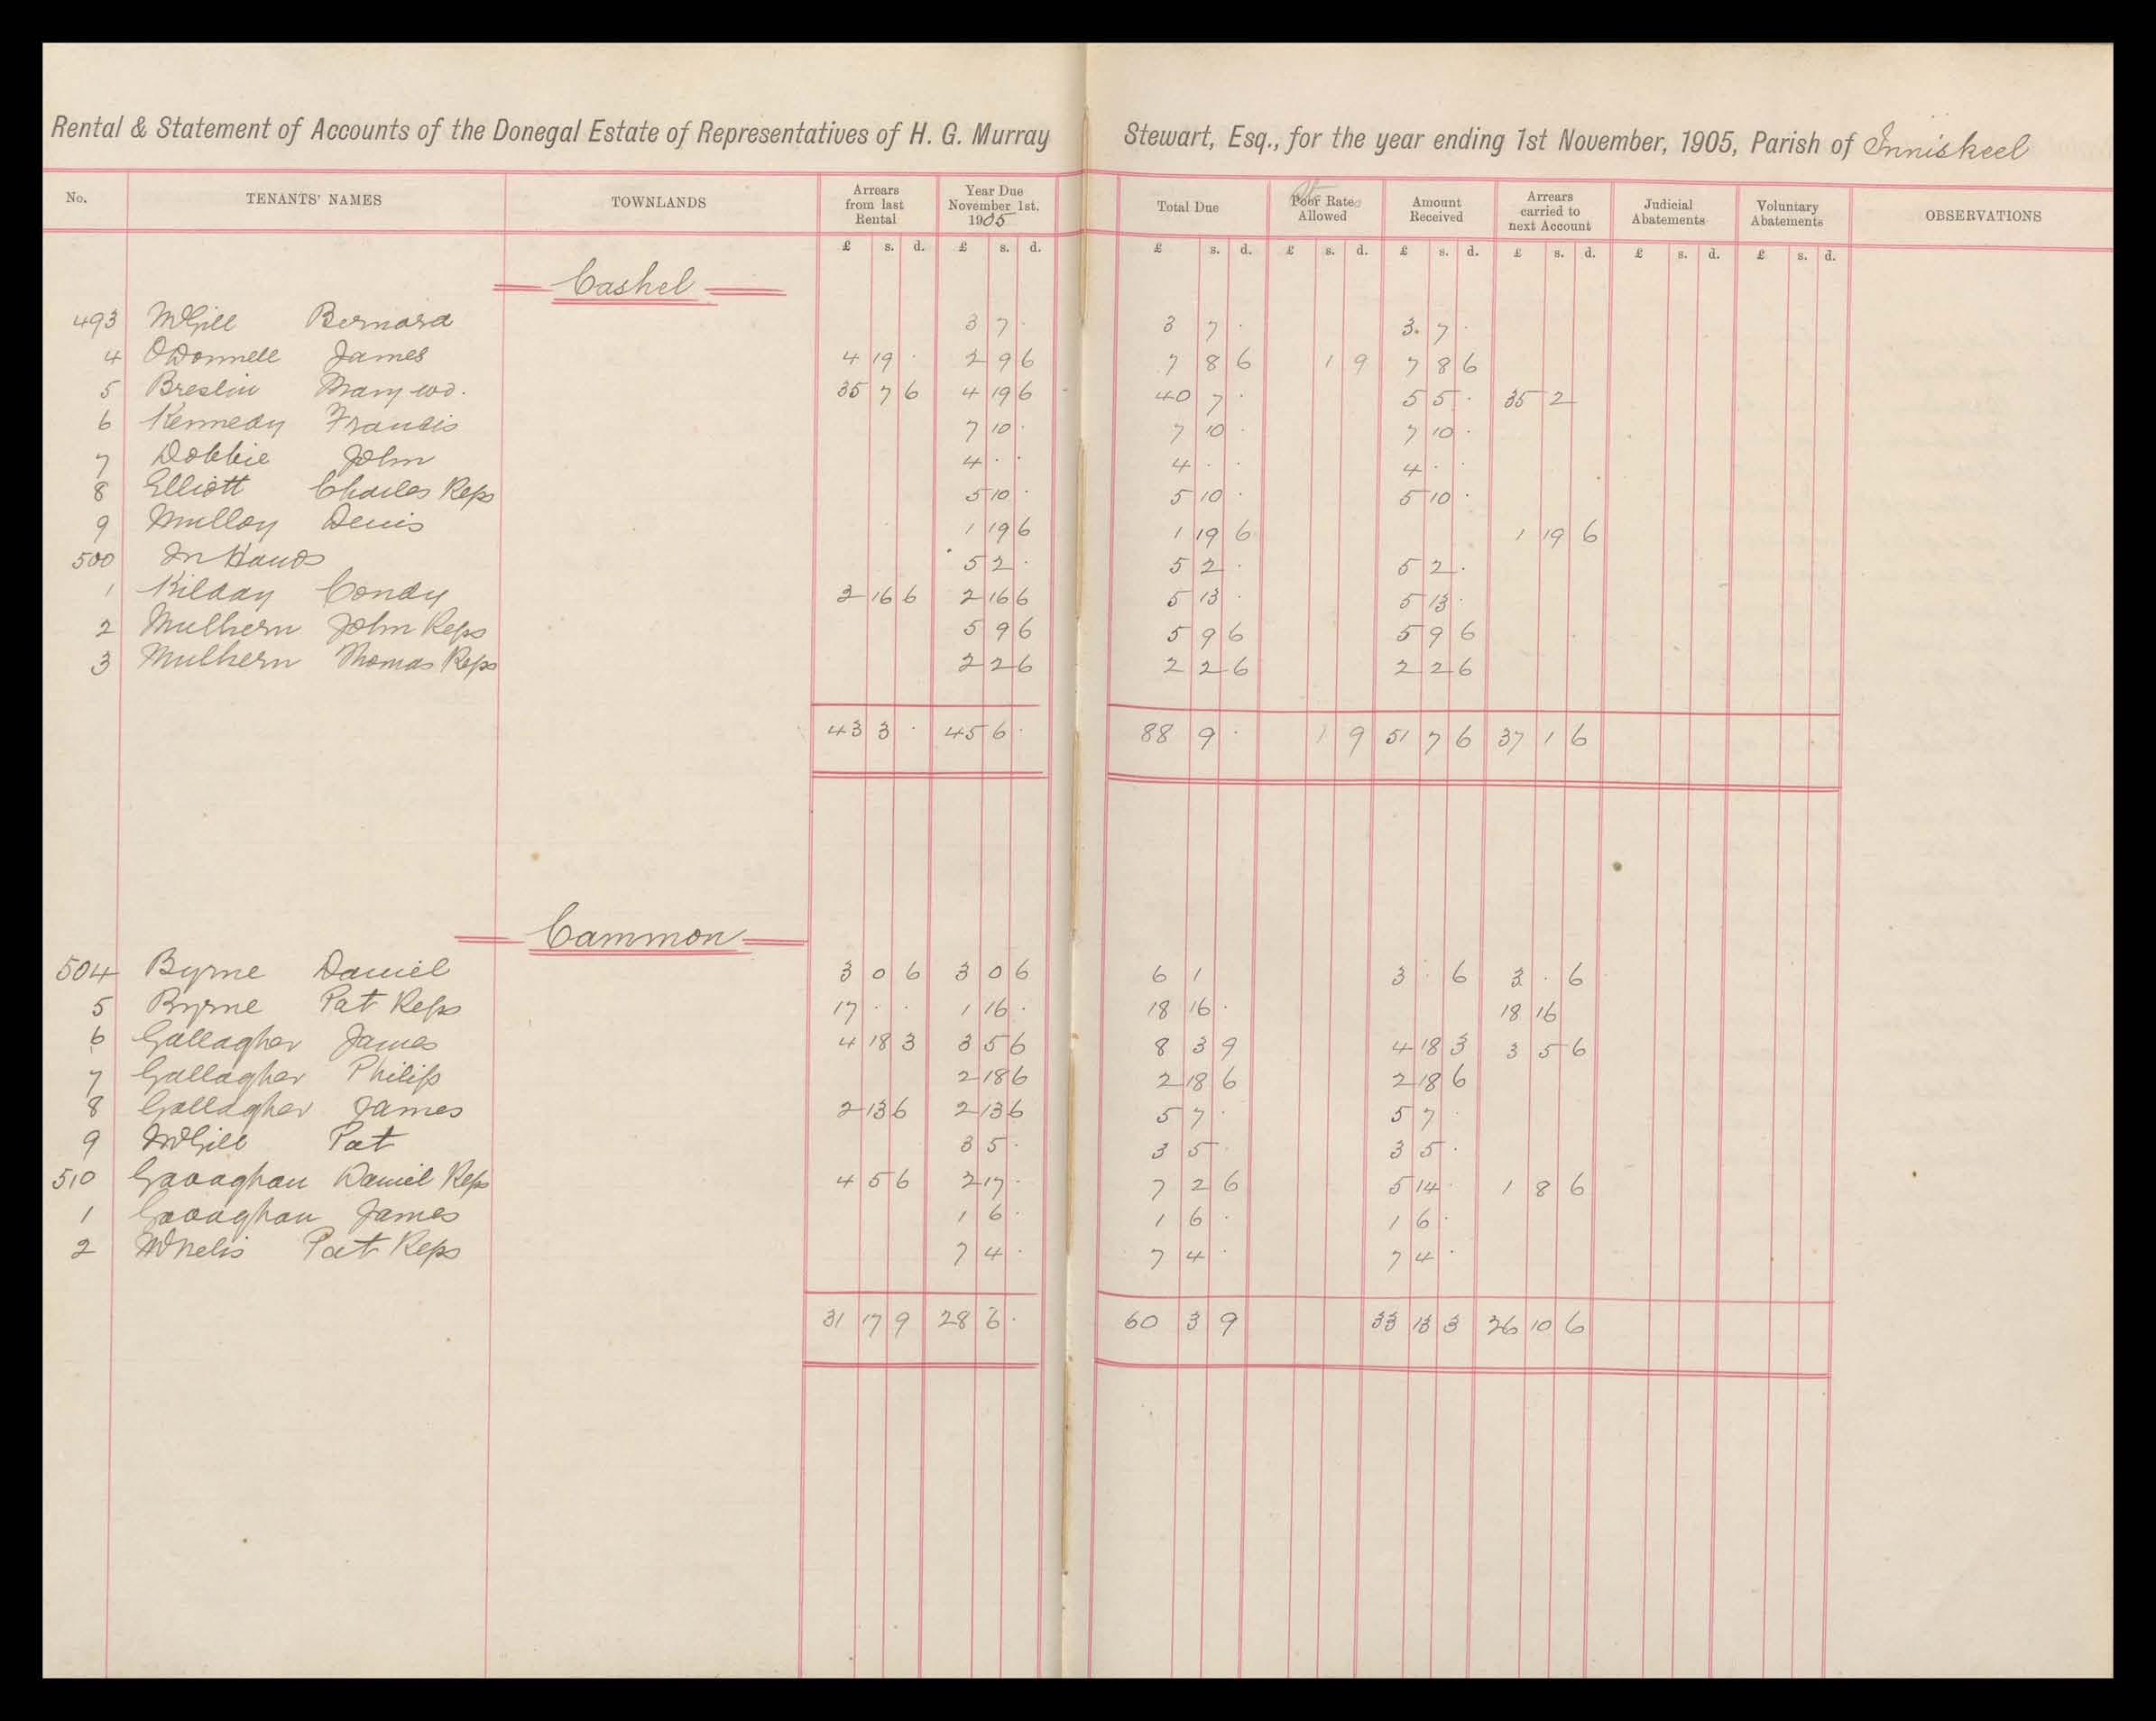 Rental & Statement of Accounts of the Donegal Estate of Representatives of H. G. Murray Stewart, Esq., for the year ending 1st November, 1905, Parish of Inniskeel
No. TENANTS' NAMES TOWNLANDS Arrears from last Rental Year Due November 1st, 1905 Total Due Poor Rate Allowed Amount Received Arrears carried to next Account Judicial Abatements Voluntary Abatements OBSERVATIONS
£ s. d. £ s. d. £ s. d. £ s. d. £ s. d. £ s. d. £ s. d. £ s. d.
Cashel
493 McGill Bernard 3 7 · 3 7 · 3 7 ·
4 O'Donnell James 4 19 · 2 9 6 7 8 6 1 9 7 8 6
5 Breslin Mary wd. 35 7 6 4 19 6 40 7 · 5 5 · 35 2
6 Kennedy Francis 7 10 · 7 10 · 7 10 ·
7 Dobbie John 4 · · 4 · · 4 · ·
8 Elliott Charles Reps 5 10 · 5 10 · 5 10 ·
9 Mulloy Denis 1 19 6 1 19 6 1 19 6
500 In Hands 5 2 · 5 2 · 5 2 ·
1 Kilday Condy 2 16 6 2 16 6 5 13 · 5 13 ·
2 Mulhern John Reps 5 9 6 5 9 6 5 9 6
3 Mulhern Thomas Reps 2 2 6 2 2 6 2 2 6
43 3 · 45 6 · 88 9 · 1 9 51 7 6 37 1 6
Cammon
504 Byrne Daniel 3 0 6 3 0 6 6 1 3 · 6 3 · 6
5 Byrne Pat Reps 17 · · 1 16 · 18 16 · 18 16
6 Gallagher James 4 18 3 3 5 6 8 3 9 4 18 3 3 5 6
7 Gallagher Philip 2 18 6 2 18 6 2 18 6
8 Gallagher James 2 13 6 2 13 6 5 7 · 5 7 ·
9 McGill Pat 3 5 · 3 5 · 3 5 ·
510 Gavaghan Daniel Reps 4 5 6 2 17 · 7 2 6 5 14 · 1 8 6
1 Gavaghan James 1 6 · 1 6 · 1 6 ·
2 McNelis Pat Reps 7 4 · 7 4 · 7 4 ·
31 17 9 28 6 · 60 3 9 33 13 3 26 10 6